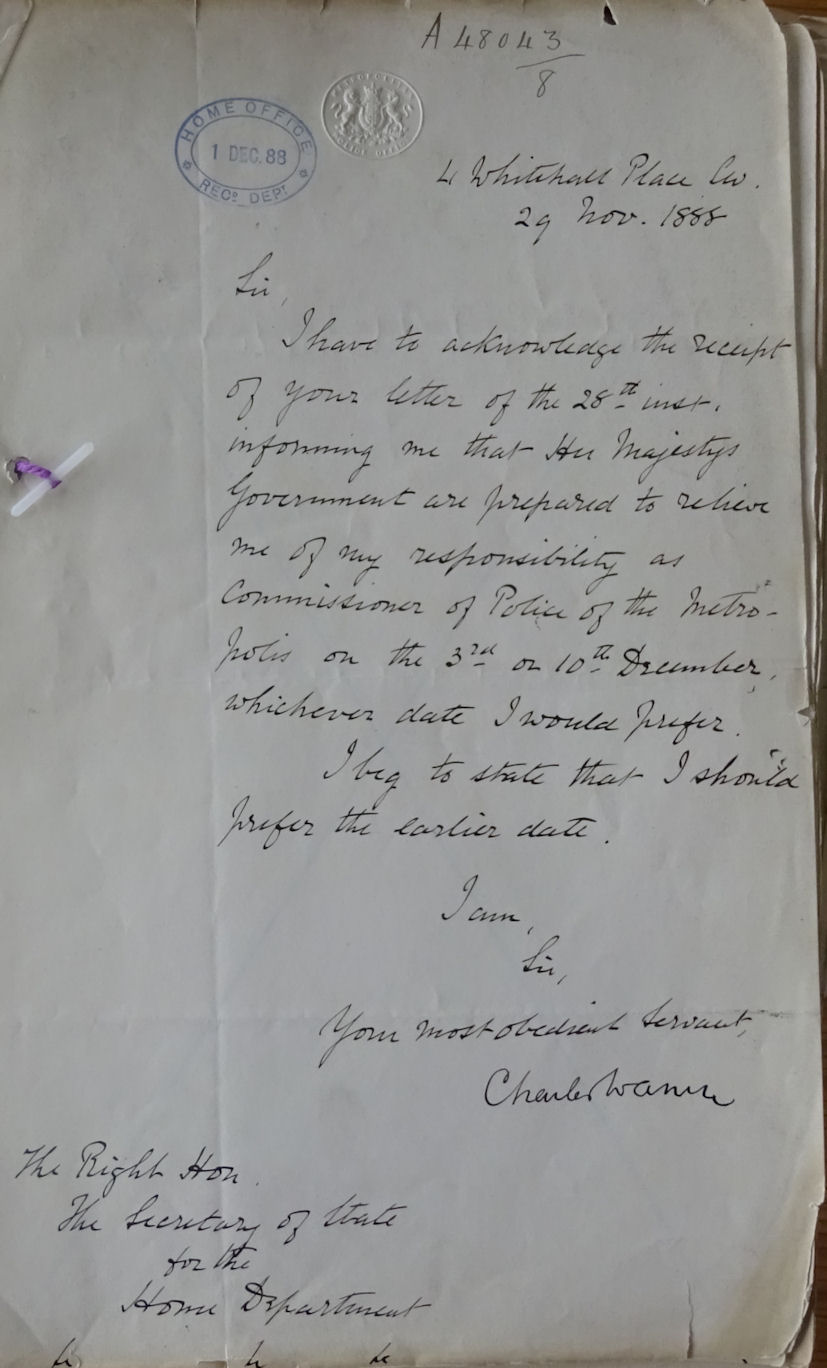 A 48043
8
HOME OFFICE
1 DEC. 88
RECD. DEPT
4 Whitehall Place Sw.
29 Nov. 1888
Sir,
I have to acknowledge the receipt
of your letter of the 28th inst.
informing me that Her Majestys
Government are prepared to relieve
me of my responsibility as
Commissioner of Police of the Metro-
polis on the 3rd or 10th December,
whichever date I would prefer.
I beg to state that I should
prefer the earlier date.
I am,
Sir,
Your most obedient Servant,
Charles Warren
The Right Hon.
The Secretary of State
for the
Home Department
&c &c &c